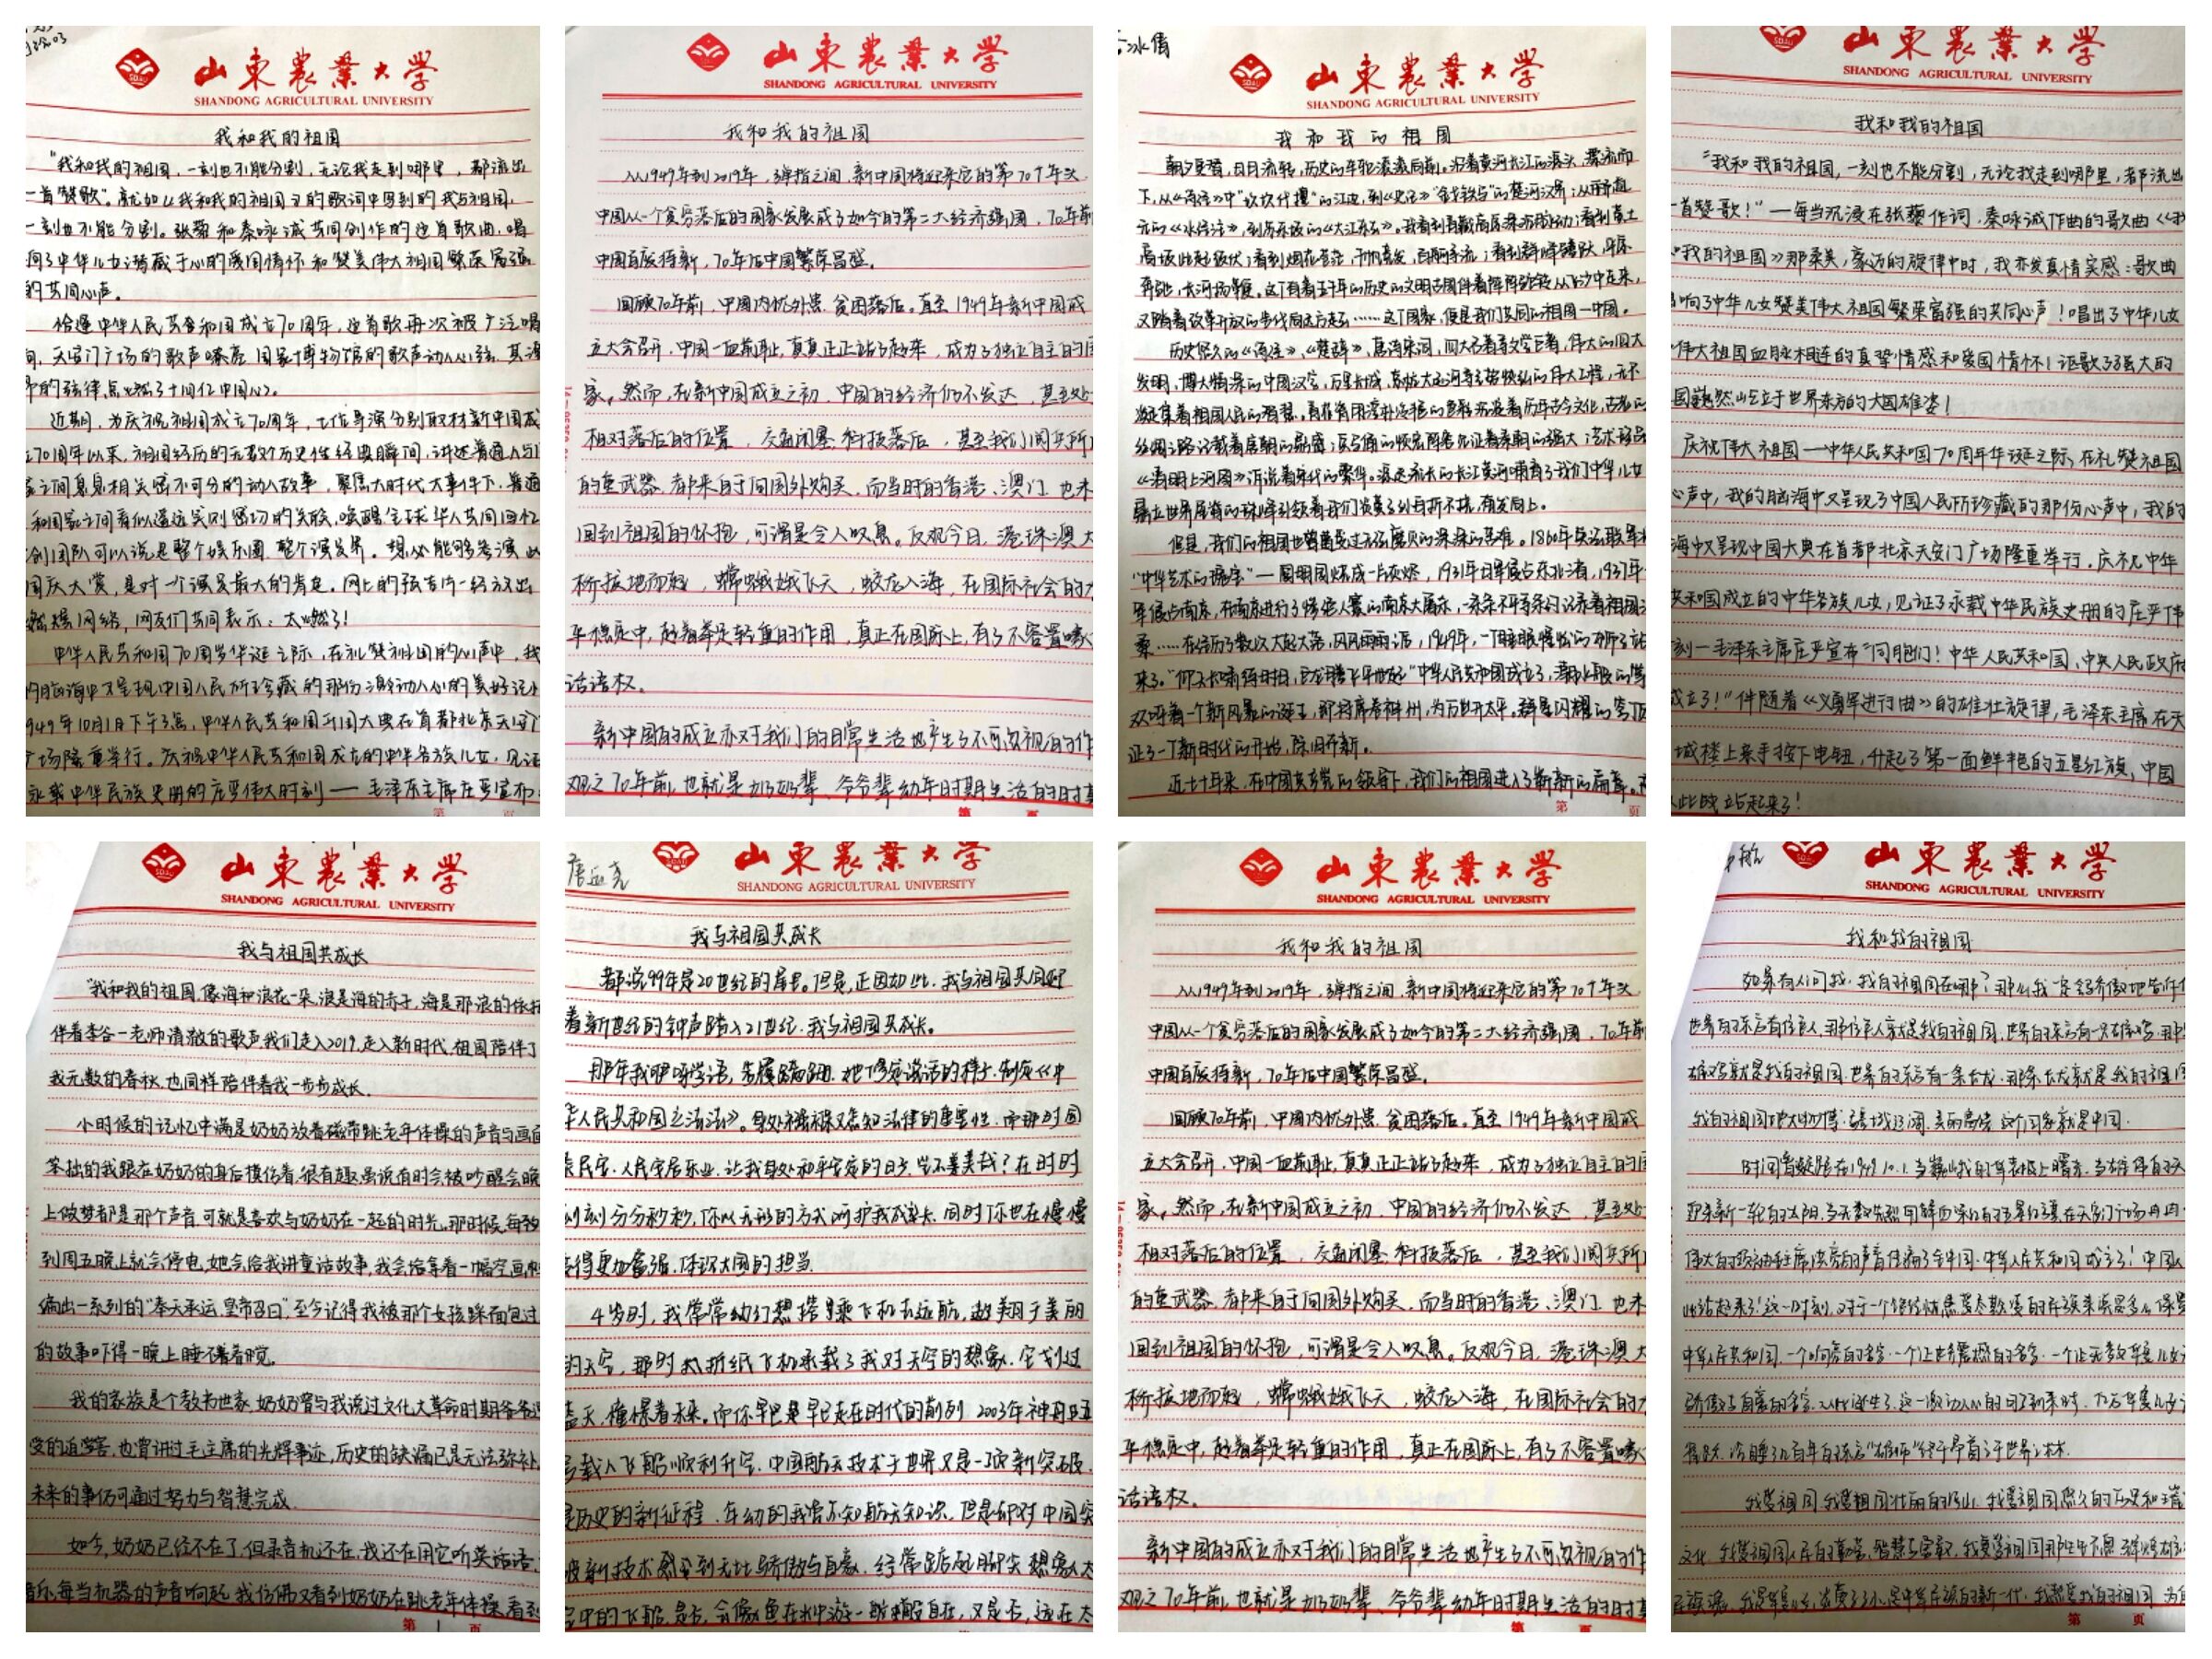 山东农业大学
SHANDONG AGRICULTURAL UNIVERSITY
我和我的祖国
"我和我的祖国，一刻也不能分割，无论我走到哪里，都流出
一首赞歌"。就如《我和我的祖国》的歌词中写到的我与祖国，
一刻也不能分割。张藜和秦咏诚共同创作的这首歌曲，唱
响了中华儿女潜藏于心的爱国情怀和赞美伟大祖国繁荣富强
的共同心声。
恰逢中华人民共和国成立70周年，这首歌再次被广泛唱
响，天安门广场的歌声嘹亮，国家博物馆的歌声动人心弦，其
的弦律点燃了十四亿中国心。
近期，为庆祝祖国成立70周年，七位导演分别取材新中国成
立70周年以来，祖国经历的无数个历史性经典瞬间，讲述普通人与
家之间息息相关密不可分的动人故事，聚焦大时代大事件下，普通
和国家之间看似遥远实则密切的关联，唤醒全球华人共同回忆
创团队可以说是整个娱乐圈，整个演艺界。想必能够参演
国庆大赏，是对一个演员最大的肯定。网上的预告片一经放出
燃爆网络，网友们共同表示：太燃了！
中华人民共和国70周岁华诞之际，在礼赞祖国的心声中，我
的脑海中又呈现中国人民所珍藏的那份激动人心的美好记
1949年10月1日下午3点，中华人民共和国开国大典在首都北京天安门
广场隆重举行。庆祝中华人民共和国成立的中华各族儿女，见证
永载中华民族史册的庄严伟大时刻——毛泽东主席庄严宣布
第 页
山东农业大学
SHANDONG AGRICULTURAL UNIVERSITY
我和我的祖国
从1949年到2019年，弹指之间，新中国将迎来它的第70个年次
中国从一个贫穷落后的国家发展成了如今的第二大经济强国，70年前
中国百废待新，70年后中国繁荣昌盛。
回顾70年前，中国内忧外患，贫困落后。直至1949年新中国成
立大会召开，中国一血前耻，真真正正站了起来，成为了独立自主的国
家，然而，在新中国成立之初，中国的经济仍不发达，甚至处
相对落后的位置，交通闭塞，科技落后，甚至我们阅兵所
的重武器，都来自于向国外购买，而当时的香港、澳门，也未
回到祖国的怀抱，可谓是令人叹息。反观今日，港珠澳大
桥拔地而起，嫦娥飞天，蛟龙入海，在国际社会的
平稳定中，起着举足轻重的作用，真正在国际上，有了不容置喙
话语权。
新中国的成立亦对于我们的日常生活也产生了不可忽视的作
观之70年前，也就是奶奶辈、爷爷辈幼年时期生活的时
第 页
冰倩
山东农业大学
SHANDONG AGRICULTURAL UNIVERSITY
我和我的祖国
朝夕更替，日月流转，历史的车轮滚滚向前。沿着黄河长江的源头，漂流而
下，从《诗经》中"坎坎伐檀"的江边，到《史记》"金戈铁马"的楚河汉界；从郦道
元的《水经注》，到苏东坡的《大江东去》。我看到青藏高原
高坡此起彼伏；看到烟花苍茫，千帆竞发，百舸争流；看到群峰
奔驰，长河扬鞭。这个有着五千年的历史的文明古国伴着阵阵驼铃从飞沙中走来，
又踏着改革开放的步伐向远方走去……这个国家，便是我们共同的祖国—中国。
历史悠久的《诗经》，《楚辞》，唐诗宋词，四大名著等文学巨著，伟大的四大
发明，博大精深的中国汉字，万里长城，京杭大运河等气势恢弘的伟大工程，无不
凝集着祖国人民的智慧。
丝绸之路记载着唐朝的鼎盛；
《清明上河图》诉说着宋代的繁华。源远流长的长江黄河哺育了我们中华儿女
但是，我们的祖国也曾遭受过无法磨灭的深深的苦难。1860年英法联军
"中华艺术的瑰宝"—圆明园烧成一片灰烬，1931年日军侵占东北三省，1937年
军侵占南京，在南京进行了惨绝人寰的南京大屠杀，一条条不平等条约记录着祖国
桑……在经历了数以大起大落，风风雨雨后，1949年，一个
来了。
欢呼着一个新风暴的诞生，即将席卷神州，为万世开太平。群星闪耀的
证了一个新时代的开始，除旧开新。
近七十年来，在中国共产党的领导下，我们的祖国进入了崭新的篇章。
第 页
山东农业大学
SHANDONG AGRICULTURAL UNIVERSITY
我和我的祖国
"我和我的祖国，一刻也不能分割，无论我走到哪里，都流出
一首赞歌！"—每当沉浸在张藜作词、秦咏诚作曲的歌曲《我
和我的祖国》那柔美，豪迈的旋律中时，我亦发真情实感：歌曲
唱响了中华儿女赞美伟大祖国繁荣富强的共同心声！唱出了中华儿女
伟大祖国血脉相连的真挚情感和爱国情怀！讴歌了强大的
国巍然屹立于世界东方的大国雄姿！
庆祝伟大祖国—中华人民共和国70周年华诞之际，在礼赞祖国
心声中，我的脑海中又呈现了中国人民所珍藏的那份心声中，我的
海中又呈现中国大典在首都北京天安门广场隆重举行。庆祝中华
共和国成立的中华各族儿女，见证了永载中华民族史册的庄严伟
刻—毛泽东主席庄严宣布"同胞们！中华人民共和国，中央人民政府
成立了！"伴随着《义勇军进行曲》的雄壮旋律，毛泽东主席在天
城楼上亲手按下电钮，升起了第一面鲜艳的五星红旗，中国
从此成立站起来了！
山东农业大学
SHANDONG AGRICULTURAL UNIVERSITY
我与祖国共成长
"我和我的祖国，像海和浪花一朵，浪是海的赤子，海是那浪的依托
伴着李谷一老师清澈的歌声我们走入2019，走入新时代，祖国陪伴了
我无数的春秋，也同样陪伴着我一步步成长。
小时候的记忆中满是奶奶放着磁带跳老年体操的声音与画面
笨拙的我跟在奶奶的身后模仿着，很有趣，虽说有时会被吵醒会晚
上做梦都是那个声音，可就是喜欢与奶奶在一起的时光，那时候，每到
到周五晚上就会停电，她会给我讲童话故事，我会指着看一幅空画
编出一系列的"奉天承运，皇帝召曰"，至今记得我被那个女孩踩面包过
的故事吓得一晚上睡不着着觉。
我的家族是个教书世家，奶奶曾与我说过文化大革命时期爷爷
受的迫害，也曾讲过毛主席的光辉事迹，历史的缺漏已是无法弥补，
未来的事仍可通过努力与智慧完成。
如今，奶奶已经不在了，但录音机还在，我还在用它听英语话语，
音乐，每当机器的声音响起，我仿佛又看到奶奶在跳老年体操，看到
第 1 页
山东农业大学
SHANDONG AGRICULTURAL UNIVERSITY
我与祖国共成长
都说99年是20世纪的尾巴。但是，正因如此，我与祖国共同迎
着新世纪的钟声踏入21世纪，我与祖国共成长。
那年我咿呀学语，步履蹒跚，
华人民共和国立法法》。身处襁褓又怎知法律的重要性，而那时国
泰民安，人民安居乐业，让我身处和平安定的日子，岂不美哉？在时时
刻刻分分秒秒，你以无形的方式呵护我成长，同时你也在慢慢
变得更加富强，体现大国的担当。
4岁时，我常常幻想搭乘飞机去远航，遨翔于美丽
的天空，那时折纸飞机承载了我对天空的想象，它划过
蓝天，憧憬着未来。而你早已是早已走在时代的前列，2003年神舟五
号载人飞船顺利升空，中国航天技术于世界又是一项新突破，
是历史的新征程，年幼的我尚不知航天知识，但是却对中国突
破新技术感受到无比骄傲与自豪，经常踮起脚尖，想象太
空中的飞船，是否会像鱼在水中游一般自在，又是否，远在太
山东农业大学
SHANDONG AGRICULTURAL UNIVERSITY
我和我的祖国
从1949年到2019年，弹指之间，新中国将迎来它的第70个年次
中国从一个贫穷落后的国家发展成了如今的第二大经济强国，70年前
中国百废待新，70年后中国繁荣昌盛。
回顾70年前，中国内忧外患，贫困落后。直至1949年新中国成
立大会召开，中国一血前耻，真真正正站了起来，成为了独立自主的国
家，然而，在新中国成立之初，中国的经济仍不发达，甚至处
相对落后的位置，交通闭塞，科技落后，甚至我们阅兵所
的重武器，都来自于向国外购买，而当时的香港、澳门，也未
回到祖国的怀抱，可谓是令人叹息。反观今日，港珠澳大
桥拔地而起，嫦娥飞天，蛟龙入海，在国际社会的
平稳定中，起着举足轻重的作用，真正在国际上，有了不容置喙
话语权。
新中国的成立亦对于我们的日常生活也产生了不可忽视的作
观之70年前，也就是奶奶辈、爷爷辈幼年时期生活的时
第 页
航
山东农业大学
SHANDONG AGRICULTURAL UNIVERSITY
我和我的祖国
如果有人问我，我的祖国在哪？那么我一定会骄傲地告诉
世界的东方有位巨人，那位巨人就是我的祖国，世界的东方有一只雄鸡，那
雄鸡就是我的祖国，世界的东方有一条长龙，那条长龙就是我的祖国
我的祖国地大物博，疆域辽阔，美丽富饶，这个国家就是中国。
时间追溯到在1949.10.1，
迎来新一轮的太阳，当无数先烈用鲜血染红的五星红旗在天安门广场冉冉
伟大的领袖毛主席，洪亮的声音传遍了全中国，中华人民共和国成立了！中国人
此站起来了！这一时刻，对于一个
中华人民共和国，一个响亮的名字，一个让世界震撼的名字，一个让无数华夏儿女
骄傲与自豪的名字，从此诞生了，这一激动人心的时刻到来时，
沉睡了几百年的东方"雄狮"终于昂首于世界之林。
我爱祖国，我爱祖国壮丽的河山，我爱祖国悠久的历史和
文化，我爱祖国人民的勤劳，智慧与勇敢，
第 页